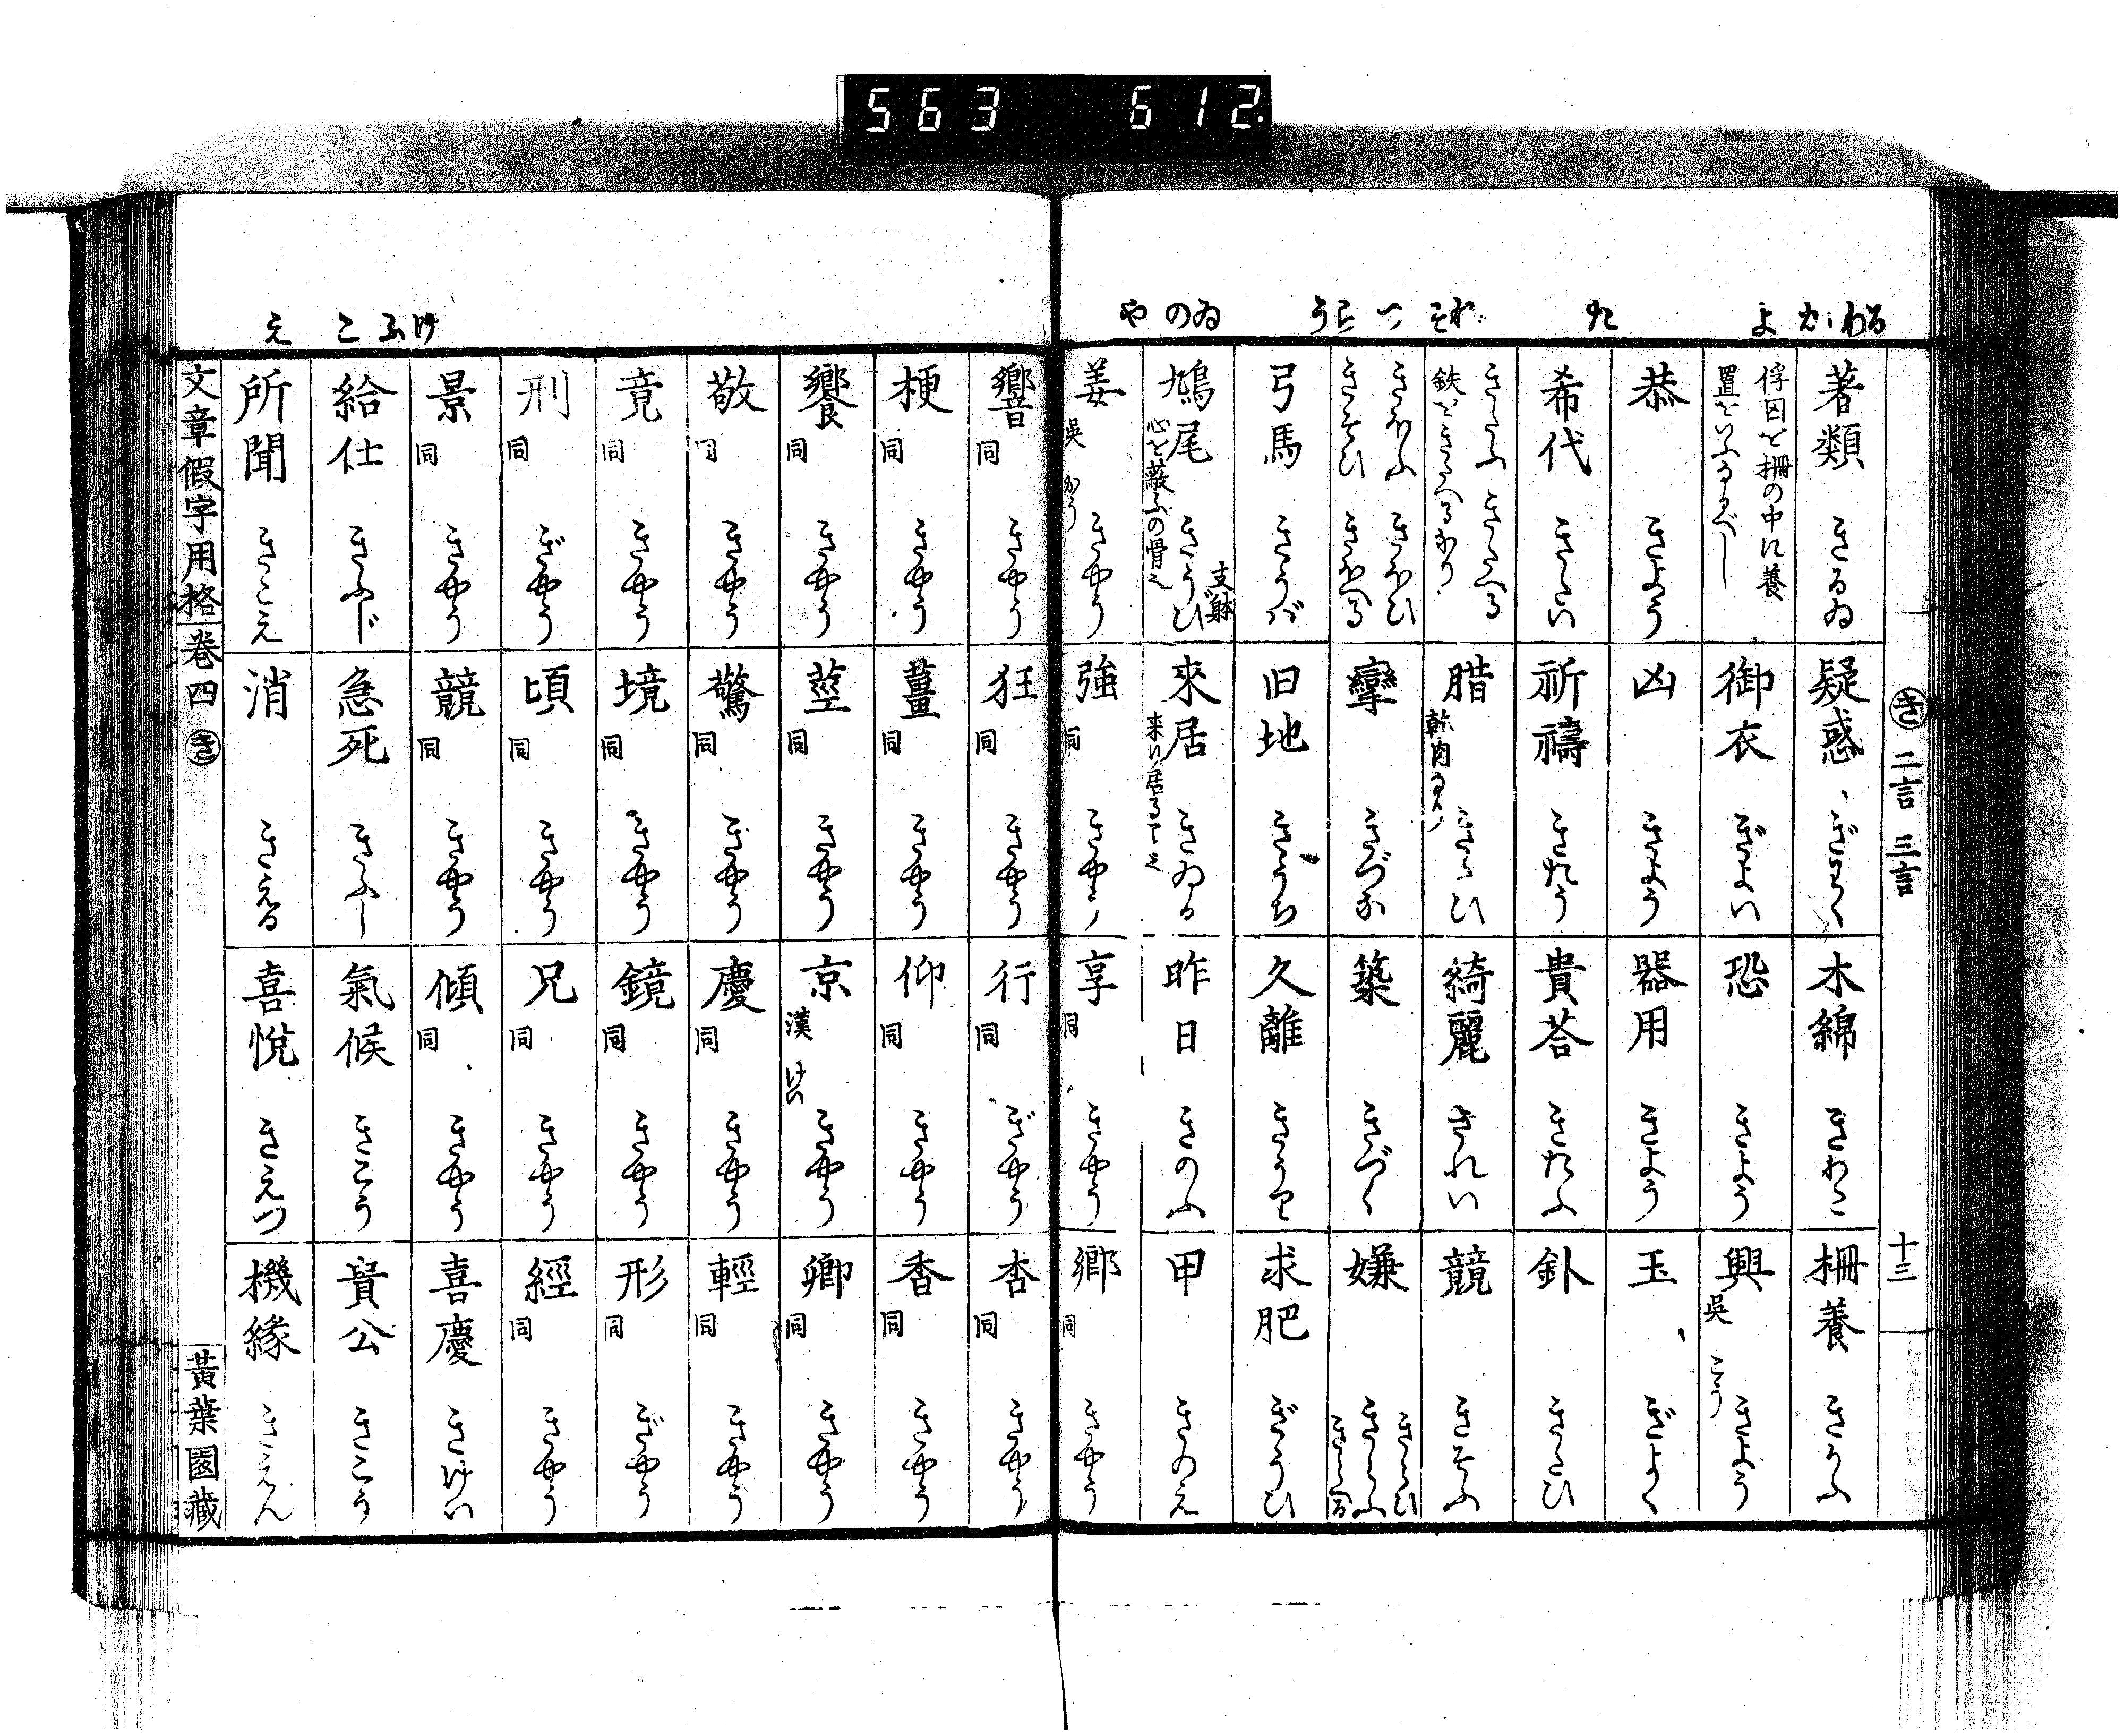 563 612.
よ かわる
た
そね
うらつ
やのゐ
き 二言 三言
十三
著類 きるゐ
疑惑 ぎわく
木綿 きわた
柵養 きかふ
俘囚を柵の中に養
置をいふなるべし
御衣 ぎよい
恐 きよう
興 呉 こう きよう
恭 きよう
凶 きよう
器用 きよう
玉 ぎよく
希代 きたい
祈禱 きたう
貴荅 きたふ
釙 きたひ
きたふ きたへる
鉄をきたへるなり
腊 乾肉なり きたひ
綺麗 きれい
競 きそふ
きほふ きほひ
きそひ きほへる
攣 きづな
築 きづく
嫌 きらひ
きらふ
きらへる
弓馬 きうば
旧地 きうち
久離 きうり
求肥 ぎうひ
鳩尾 きうび
心を蔽ふの骨也
支躰
來居 きゐる
来り居る事也
昨日 きのふ
甲 きのえ
姜 呉 かう きやう
強 同 きやう
享 同 きやう
鄉 同 きやう
響 同 きやう
狂 同 きやう
行 同 ぎやう
杏 同 きやう
梗 同 きやう
薑 同 きやう
仰 同 きやう
香 同 きやう
饗 同 きやう
莖 同 きやう
京 漢 けい きやう
卿 同 きやう
敬 同 きやう
驚 同 きやう
慶 同 きやう
輕 同 きやう
竟 同 きやう
境 同 きやう
鏡 同 きやう
形 同 ぎやう
刑 同 ぎやう
頃 同 きやう
兄 同 きやう
經 同 きやう
景 同 きやう
競 同 きやう
傾 同 きやう
喜慶 きけい
給仕 きふじ
急死 きふし
氣候 きこう
貴公 きこう
所聞 きこえ
消 きえる
喜悅 きえつ
機緣 きえん
けふこ え
文章假字用格 卷四 き
黃葉園藏